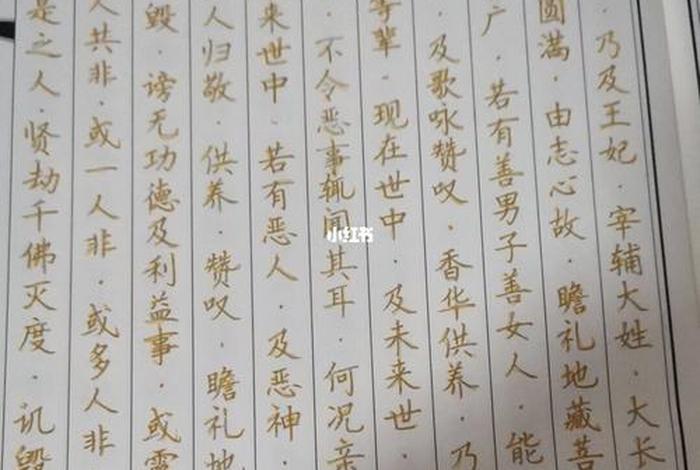 ·乃及王妃·宰辅大姓·大长
圆满·由志心故·瞻礼地藏菩
广·若有善男子善女人·能
·及歌咏赞叹·香华供养·乃
等辈·现在世中·及未来世·
·不令恶事辄闻其耳·何况亲
来世中·若有恶人·及恶神·
人归敬·供养·赞叹·瞻礼地
毁·谤无功德及利益事·或露
人共非·或一人非·或多人非
是之人·贤劫千佛灭度·讥毁
小红书